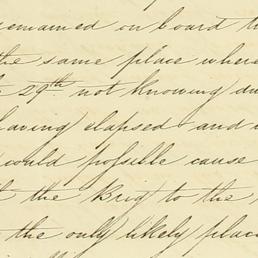 remained on board t
the same place where
29th not knowing du
having elapsed and
could possible cause
the Brig to the
the only likely place